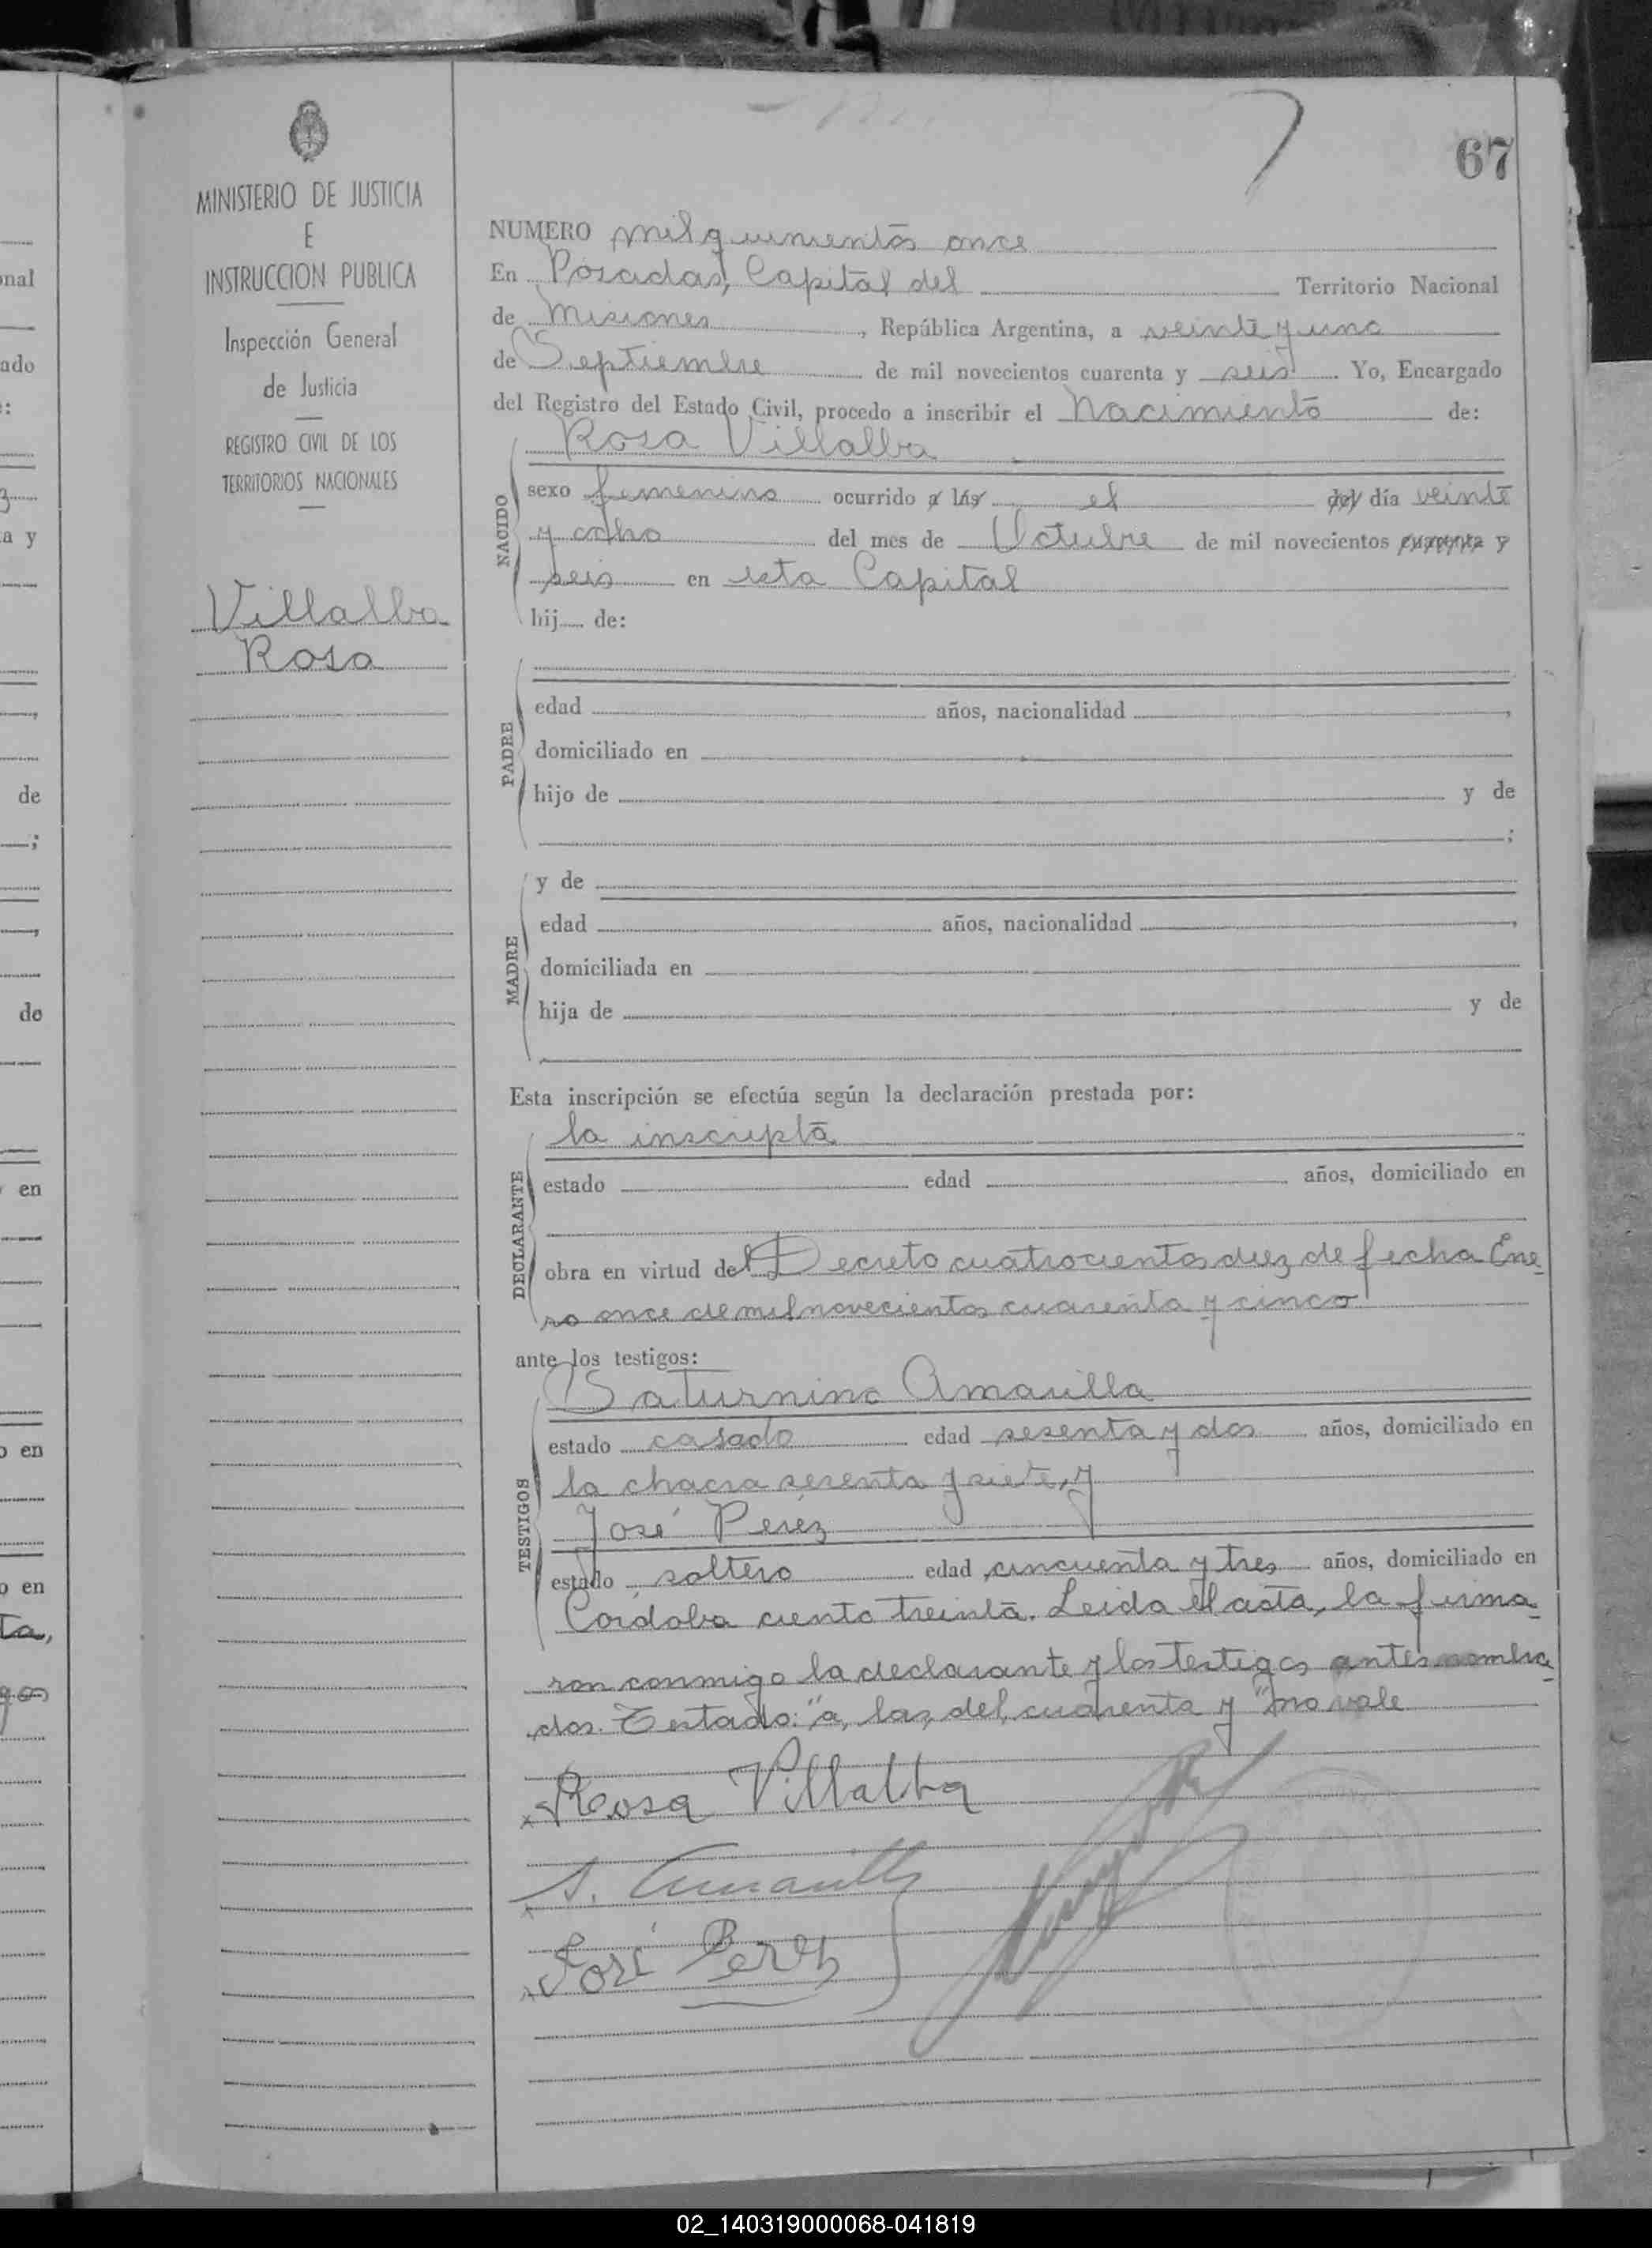 67
MINISTERIO DE JUSTICIA
E
INSTRUCCION PUBLICA
Inspección General
de Justicia
REGISTRO CIVIL DE LOS
TERRITORIOS NACIONALES
Villalba
Rosa
NUMERO mil quinientos once
En Posadas, Capital del Territorio Nacional
de Misiones, República Argentina, a veinte y uno
de Septiembre de mil novecientos cuarenta y seis. Yo, Encargado
del Registro del Estado Civil, procedo a inscribir el Nacimiento de:
NACIDO
Rosa Villalba
sexo femenino ocurrido a las el del día veinte
y ocho del mes de Octubre de mil novecientos cuarenta y
seis en esta Capital
hij de:
PADRE
edad años, nacionalidad ,
domiciliado en
hijo de y de
;
MADRE
y de
edad años, nacionalidad ,
domiciliada en
hija de y de
Esta inscripción se efectúa según la declaración prestada por:
DECLARANTE
la inscripta
estado edad años, domiciliado en
obra en virtud del Decreto cuatrocientos diez de fecha Ene-
ro once de mil novecientos cuarenta y cinco
ante los testigos:
TESTIGOS
Saturnino Amarilla
estado casado edad sesenta y dos años, domiciliado en
la chacra sesenta y siete, y
José Peréz
estado soltero edad cincuenta y tres años, domiciliado en
Córdoba ciento treinta. Leida el acta, la firma-
ron conmigo la declarante y los testigos antes nombra-
dos. Testado: "a, las, del, cuarenta y" no vale
x Rosa Villalba
x S. Amarilla
x José Perez
nal
ado
:
a y
de
;
de
en
o en
o en
ta,
02_140319000068-041819